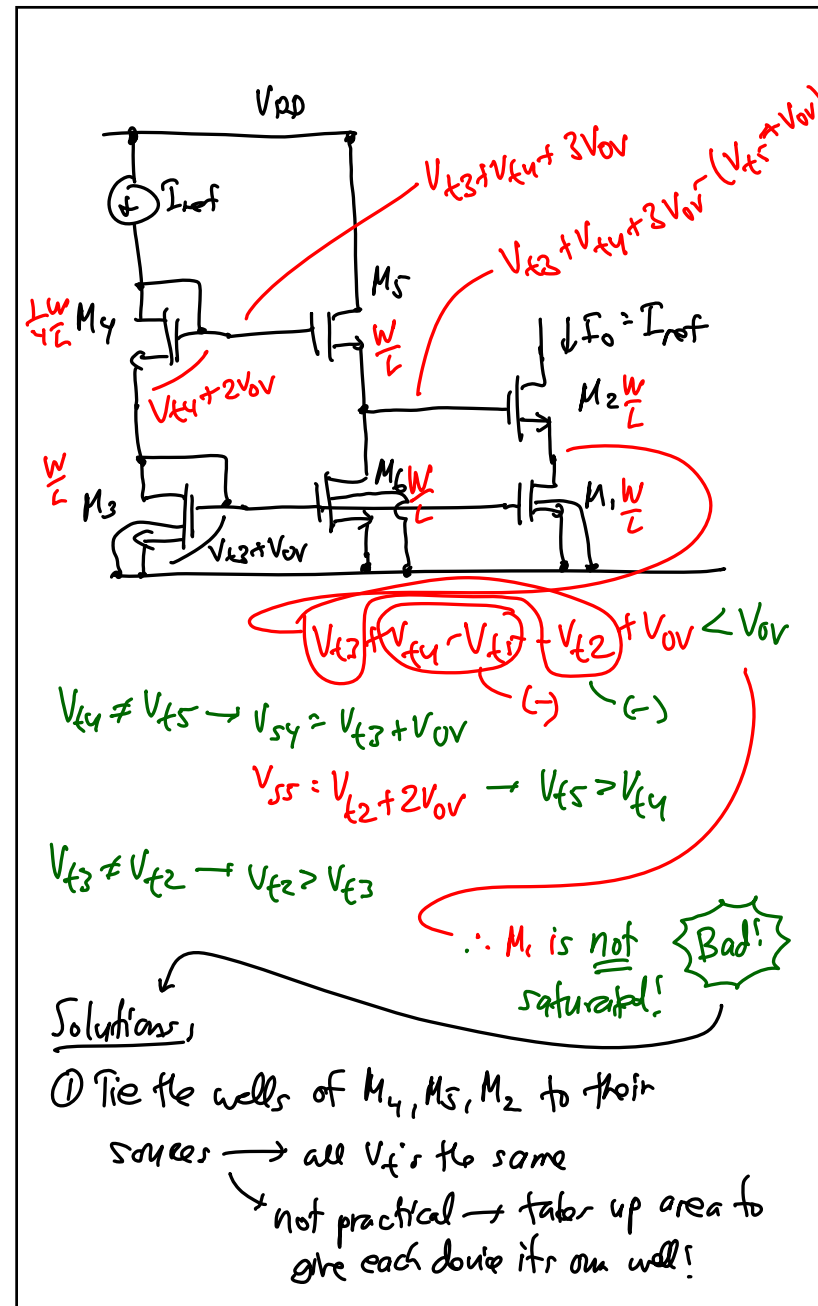 VDD
Iref
Vt3+Vt4+3Vov
Vt3+Vt4+3Vov-(Vt5+Vov)
M5
1/4 W/L M4
W/L
Io = Iref
Vt4+2Vov
M2 W/L
W/L
M3
M6 W/L
M1 W/L
Vt3+Vov
Vt3+Vt4-Vt5-Vt2+Vov < Vov
(-) (-)
Vt4 ≠ Vt5 → VS4 = Vt3+Vov
VS5 = Vt2+2Vov → Vt5 > Vt4
Vt3 ≠ Vt2 → Vt2 > Vt3
∴ M1 is not Bad!
saturated!
Solutions,
① Tie the wells of M4, M5, M2 to their
sources → all Vt's the same
→ not practical → takes up area to
give each device its own well!